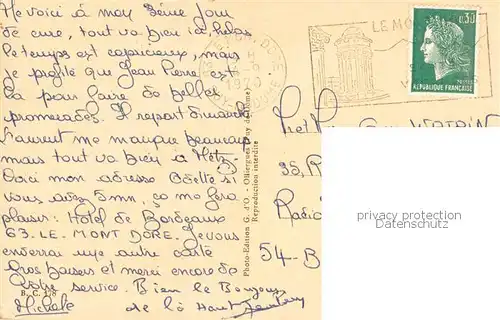 Me voici à mon 3ème jour
de cure, tout va bien ici hélas
le temps est capricieux, mais
je profite que Jean Pierre est
là pour faire de belles
promenades. Il repart dimanche
Laurent me manque beaucoup
mais tout va bien à Metz.
Voici mon adresse Odette si
vous avez 5mn, ça me fera
plaisir: Hôtel de Bordeaux
63. LE. MONT DORE. Je vous
enverrai une autre carte
Gros baisers et merci encore de
votre service. Bien le Bonjour
Michèle de là Haut
B. C. 178
Photo-Edition G. d'O. - Olliergues (Puy de Dôme)
Reproduction interdite
LE MO
0,30
RÉPUBLIQUE FRANÇAISE
35, R
Radio
54-B
privacy protection
Datenschutz